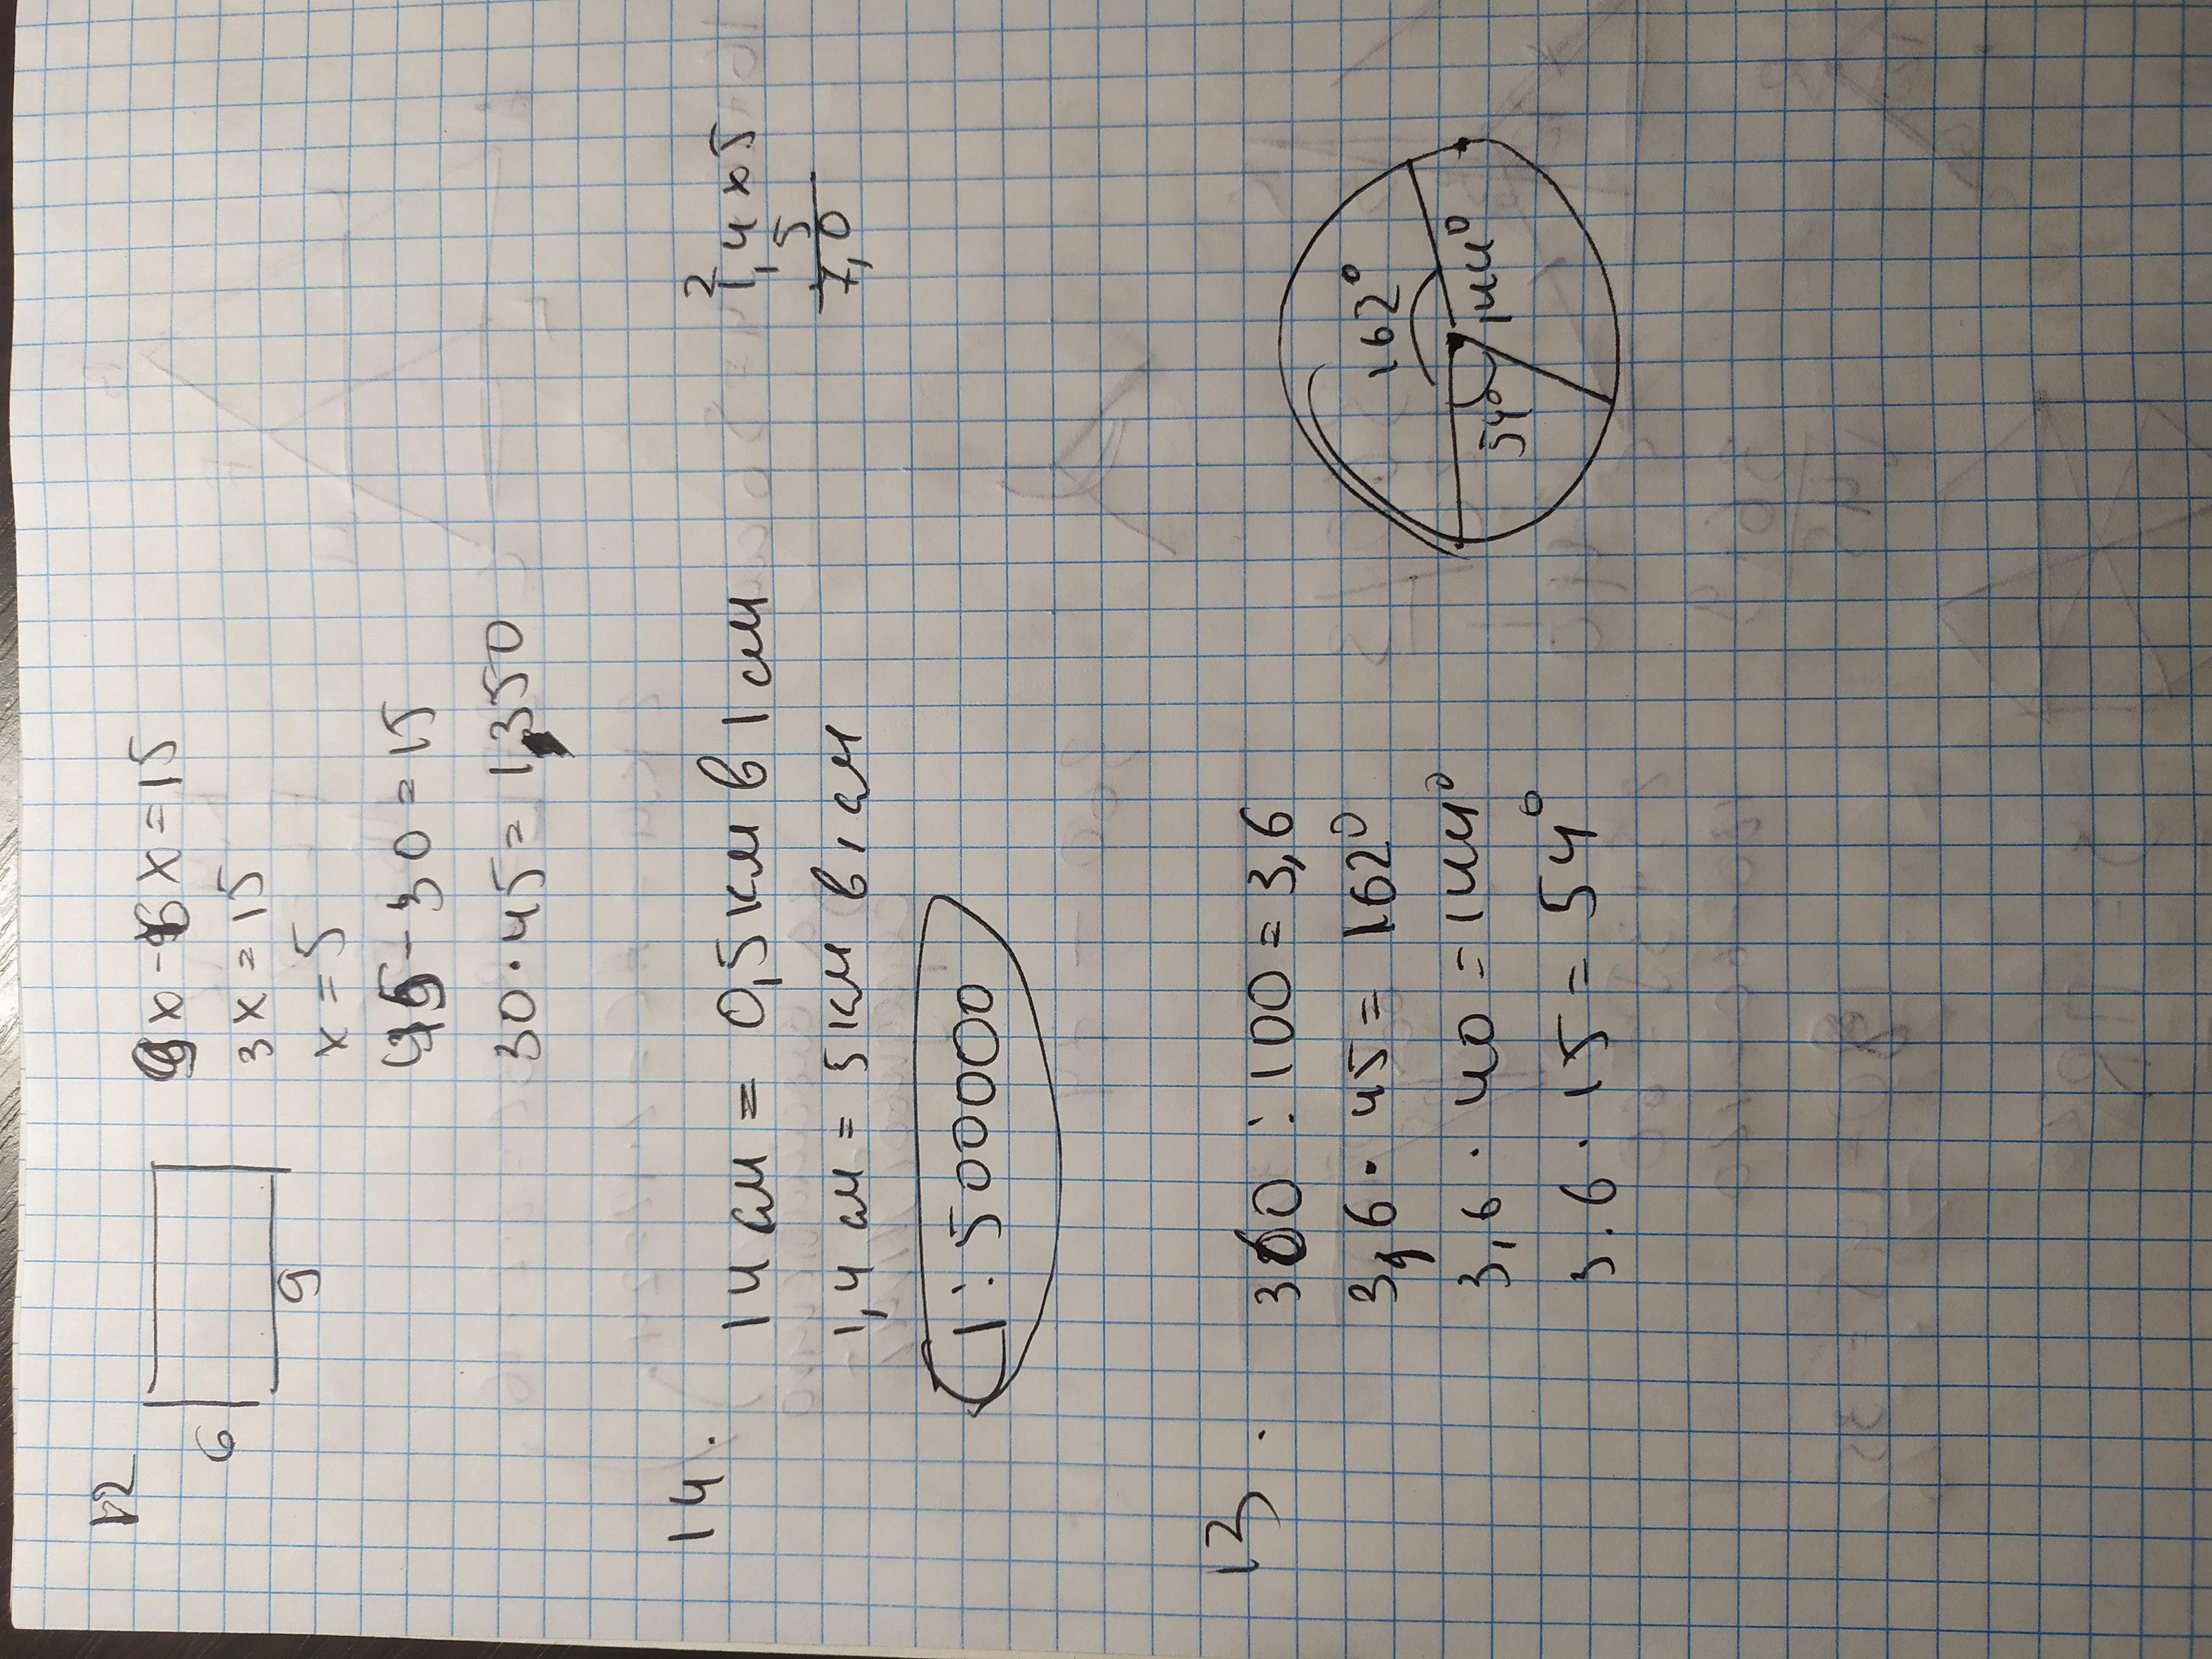 12
6
9
9x-6x=15
3x=15
x=5
45-30=15
30·45=1350
14.
14 см = 0,5 км в 1 см
1,4 см = 5 км в 1 см
1:500000
2
1,4 x 5
5
7,0
13.
360:100=3,6
3,6·45=162°
3,6·40=144°
3.6·15=54°
162°
54°
144°